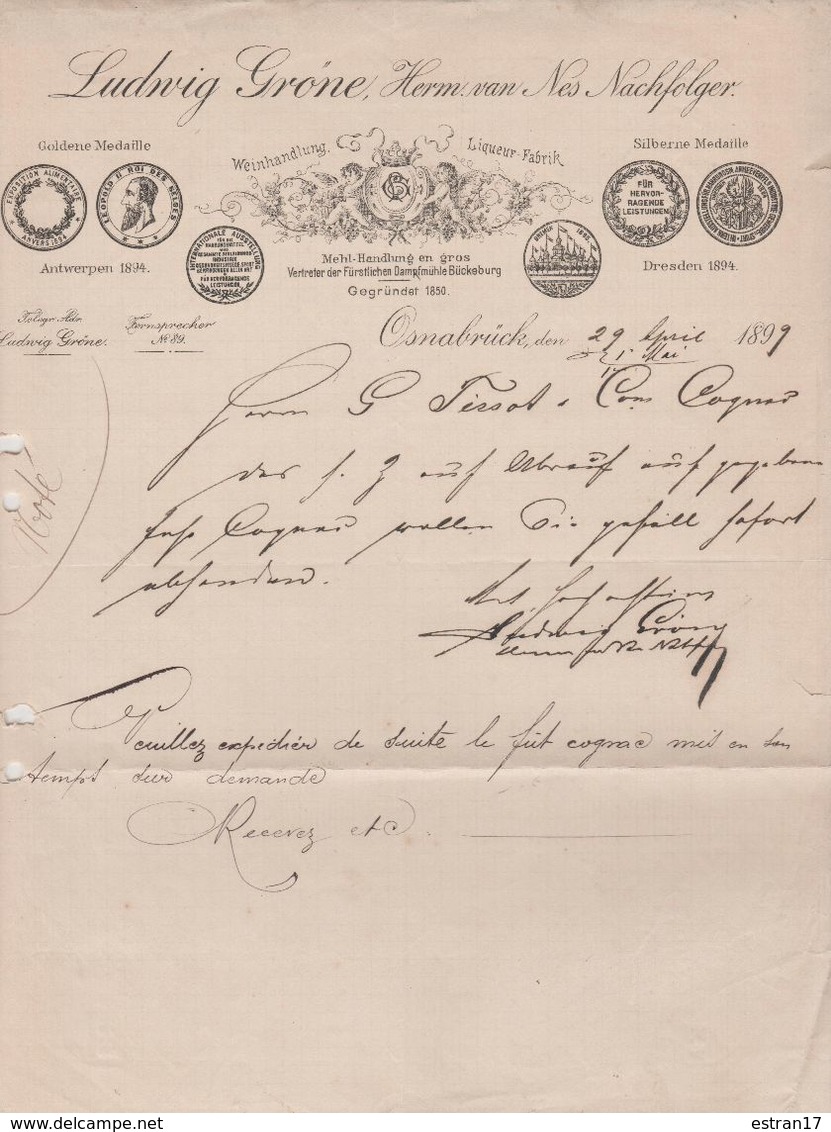 Ludwig Gröne, Herm. van Nes Nachfolger.
Goldene Medaille
Weinhandlung.
Liqueur-Fabrik
Silberne Medaille
EXPOSITION ALIMENTAIRE
ANVERS 1894
LEOPOLD II ROI DES BELGES
FÜR
HERVOR-
RAGENDE
LEISTUNGEN
INTERNATIONALE AUSSTELLUNG
FÜR HERVORRAGENDE
LEISTUNGEN
BREMEN
Antwerpen 1894.
Mehl-Handlung en gros
Vertreter der Fürstlichen Dampfmühle Bückeburg
Gegründet 1850.
Dresden 1894.
Telegr. Adr.
Ludwig Gröne.
Fernsprecher
No 89.
Osnabrück, den 29 April 1899
1 Mai
Herrn G Tissot & Com Cognac
das s. Z auf Abruf aufgegebene
Fass Cognac wollen Sie gefäll sofort
absenden.
Noté
Ludwig Gröne
Veuillez expédier de suite le fût cognac mis en son
temps sur demande
Recevez etc.
delcampe.net
estran17